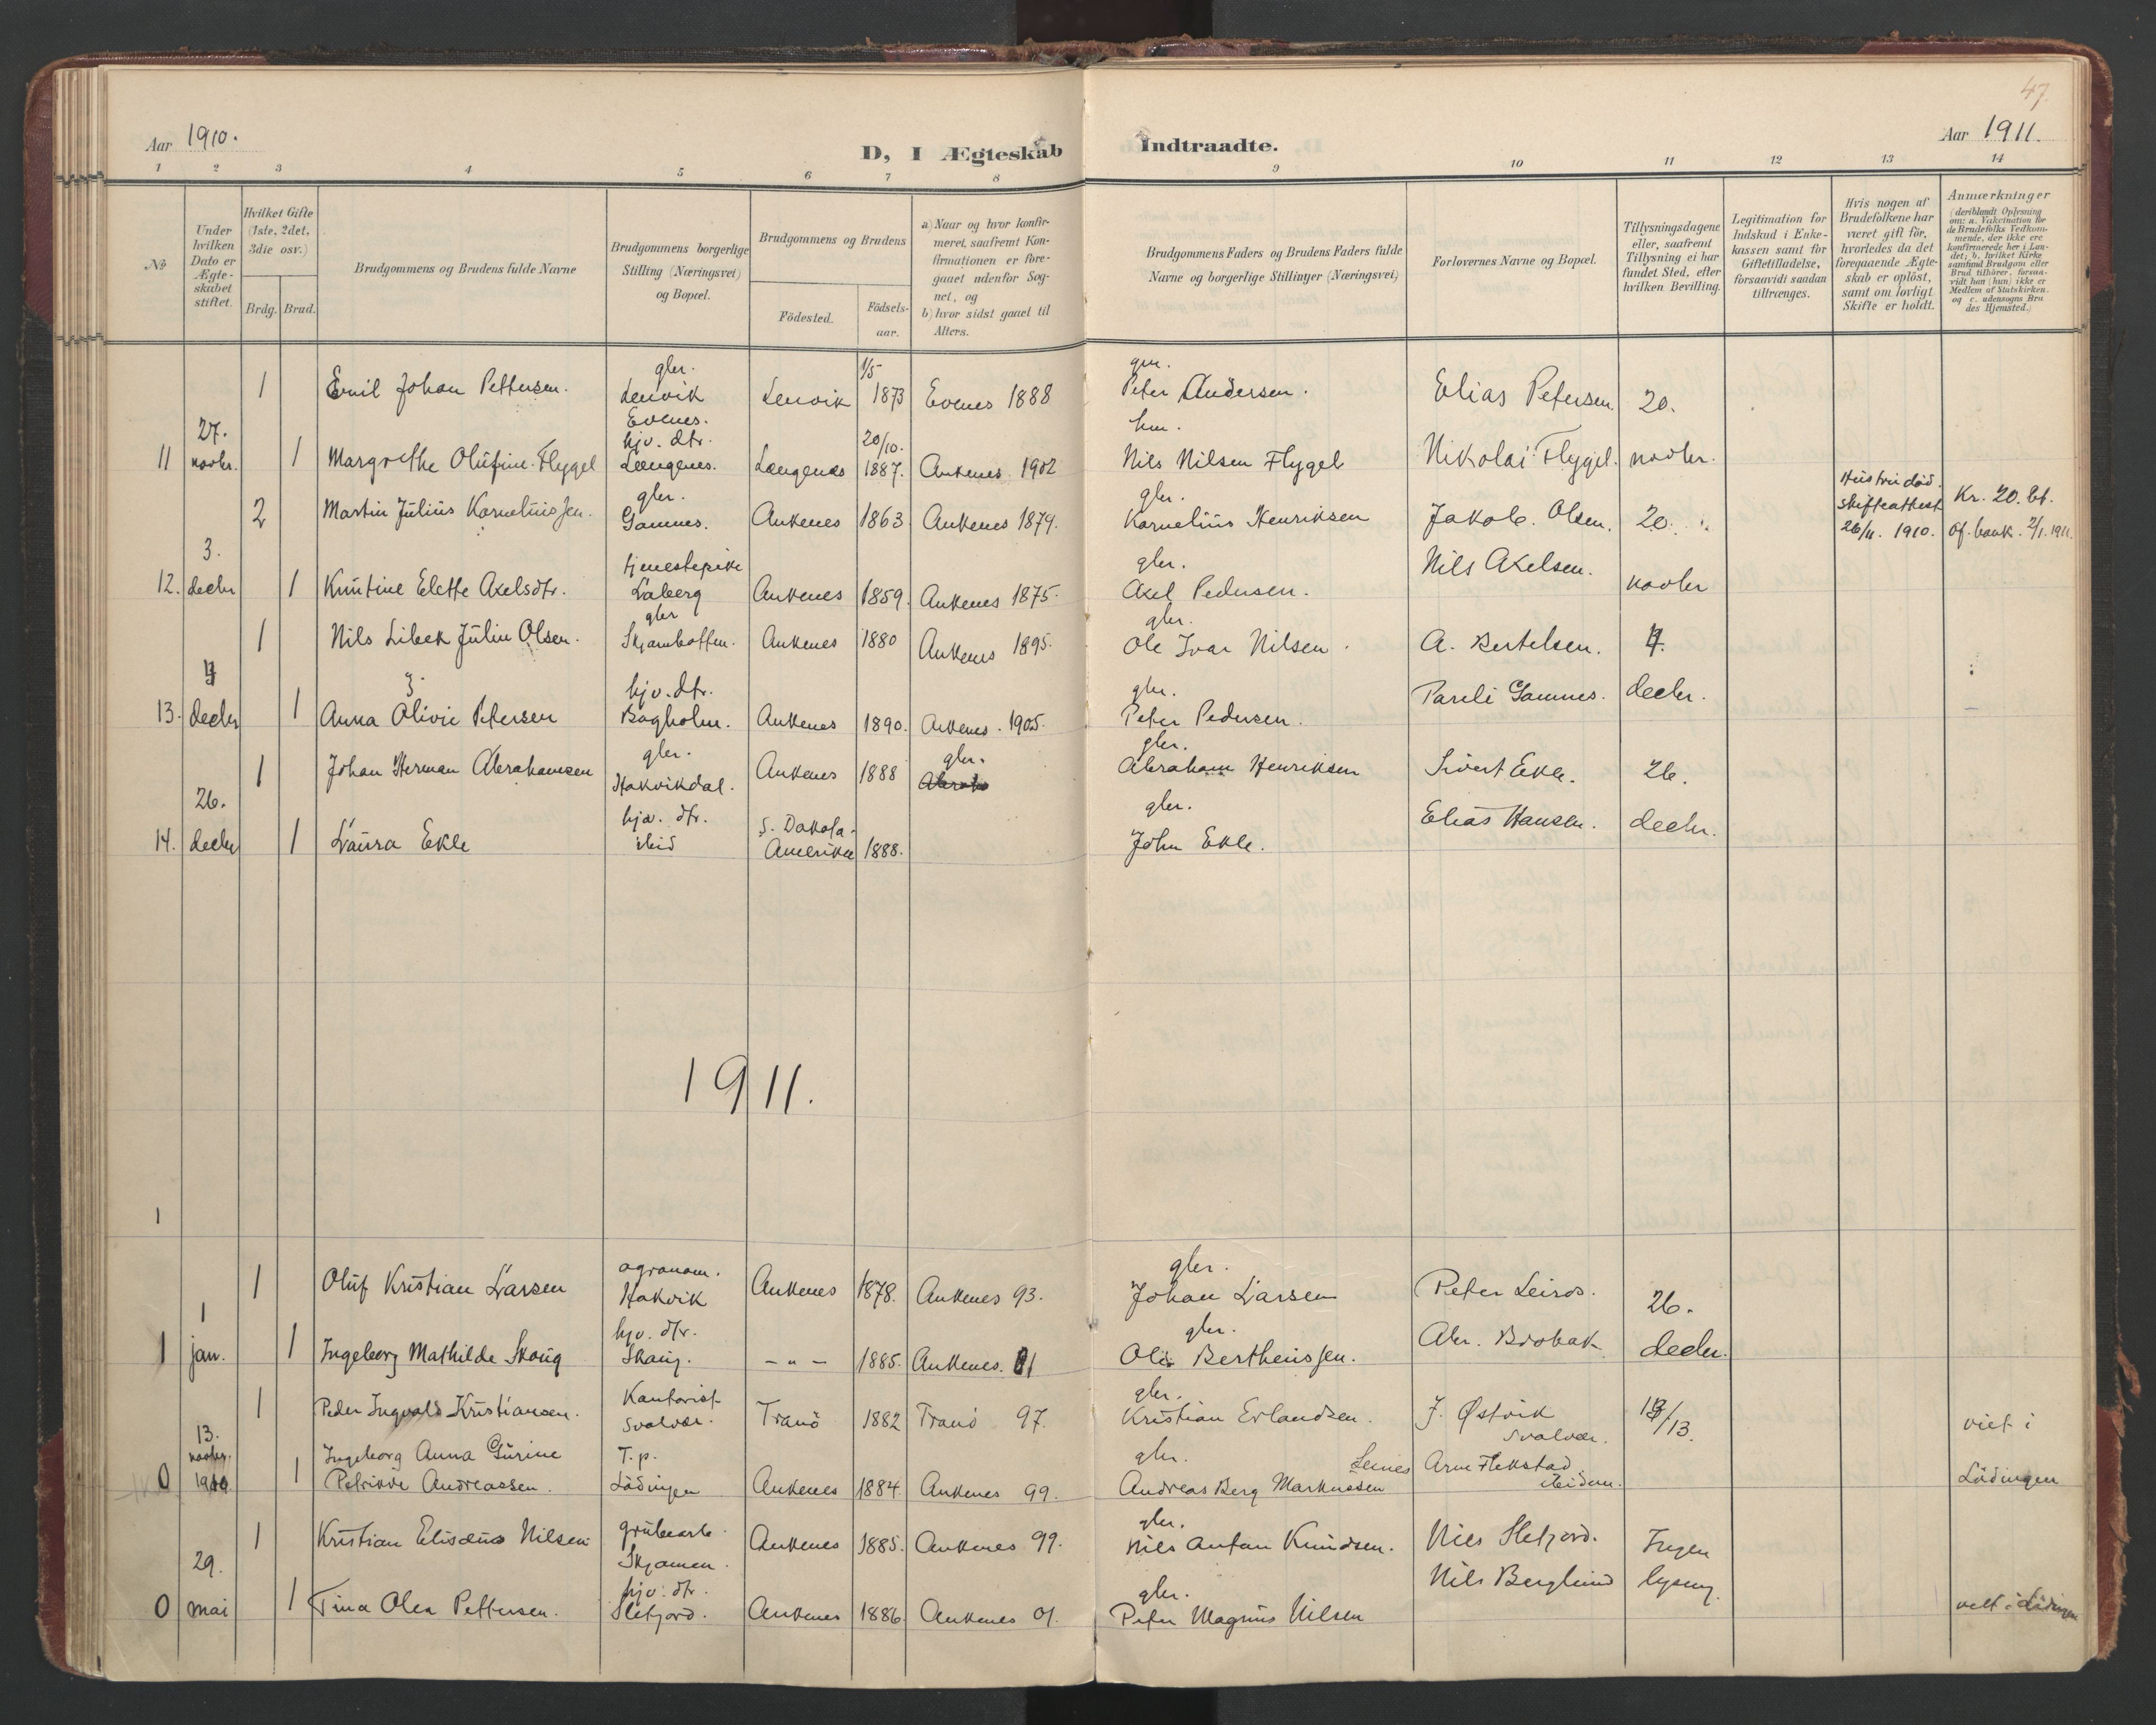 47.
Aar 1910.
D, I Ægteskab Indtraadte.
Aar 1911.
1 2 3 4 5 6 7 8 9 10 11 12 13 14
№
Under hvilken Dato er Ægte-skabet stiftet.
Hvilket Gifte (1ste, 2det, 3die osv.)
Brdg. Brud.
Brudgommens og Brudens fulde Navne
Brudgommens borgerlige Stilling (Næringsvei) og Bopæl.
Brudgommens og Brudens
Födested. Födsels-aar.
a) Naar og hvor konfir-meret, saafremt Kon-firmationen er fore-gaaet udenfor Sog-net, og
b) hvor sidst gaaet til Alters.
Brudgommens Faders og Brudens Faders fulde Navne og borgerlige Stillinger (Næringsvei)
Forlovernes Navne og Bopæl.
Tillysningsdagene eller, saafremt Tillysning ei har fundet Sted, efter hvilken Bevilling.
Legitimation for Indskud i Enke-kassen samt for Giftetilladelse, forsaavidt saadan tiltrænges.
Hvis nogen af Brudefolkene har været gift för, hvorledes da det foregaaende Ægte-skab er oplöst, samt om lovligt Skifte er holdt.
Anmærkninger
(deriblandt Oplysning om: a. Vakcination for de Brudefolks Vedkom-mende, der ikke ere konfirmerede her i Lan-det; b. hvilket Kirke samfund Brudgom eller Brud tilhörer, forsaa-vidt han (hun) ikke er Medlem af Statskirken. og c. udensogns Bru des Hjemsted.)
1 Emil Johan Pettersen. gbr. Lenvik Evenes. Lenvik 1/5 1873 Evenes 1888 gm. Peter Andersen. Elias Petersen. 20.
11 27. novbr. 1 Margrethe Olufine Flygel hjv. dtr. Længenes. Længenes 20/10. 1887. Ankenes 1902 hm. Nils Nilsen Flygel Nikolai Flygel. novbr.
2 Martin Julius Korneliussen. gbr. Gamnes. Ankenes 1863 Ankenes 1879. gbr. Kornelius Henriksen Jakob Olsen. 20. Hustru död. Skifteattest 26/11. 1910. Kr. 20. bt. Of. bank. 2/1. 1911.
12. 3. decbr 1 Kristine Elette Axelsdtr. tjenestepike Laberg Ankenes 1859. Ankenes 1875. gbr. Axel Pedersen. Nils Axelsen. novbr
1 Nils Libek Juliu Olsen. gbr Skjomhotten. Ankenes 1880 Ankenes 1895. gbr. Ole Ivar Nilsen. A. Bertelsen. 4.
13. 4 decbr 1 Anna Olivie Petersen hjv. dtr. Bogholm. Ankenes 1890. Ankenes. 1905. gbr. Peter Pedersen. Pareli Gamnes. decbr.
1 Johan Herman Abrahamsen gbr. Hakvikdal. Ankenes 1888 gbr. gbr. Abraham Henriksen Sivert Ekle. 26.
14. 26. decbr 1 Laura Ekle hjv. dtr. ibid S. Dakota. Amerika 1888. gbr. John Ekle. Elias Hansen. decbr.
1911.
1
1 Oluf Kristian Larsen agronom. Hakvik Ankenes 1878. Ankenes 93. gbr. Johan Larsen Peter Leiros. 26.
1 1 jan. 1 Ingeborg Mathilde Skoug hjv. dtr. Skoug. — „ — 1885. Ankenes. 01 gbr. Ole Bertheussen. Abr. Brobak decbr.
1 Peder Ingvald Kristiansen. Kontorist Svolvær. Tranö 1882 Tranö 97. gbr. Kristian Erlandsen. J. Østvik Svolvær. /13. viet i
0 13. novbr. 1910 1 Ingeborg Anna Gurine Petrikke Andreassen. T.p. Lödingen Ankenes 1884. Ankenes 99. gbr. Andreas Berg Markussen Arne Flekstad ibidem. Lödingen
1 Kristian Elisæus Nilsen grubearb. Skjomen. Ankenes 1885. Ankenes 99. gbr. Nils Anton Knudsen. Nils Sletjord. Ingen
0 29. mai 1 Tina Olea Pettersen. hjv. dtr. Sletjord. Ankenes 1886. Ankenes 01. gbr. Peter Magnus Nilsen Nils Berglund lysning. viet i Lödingen